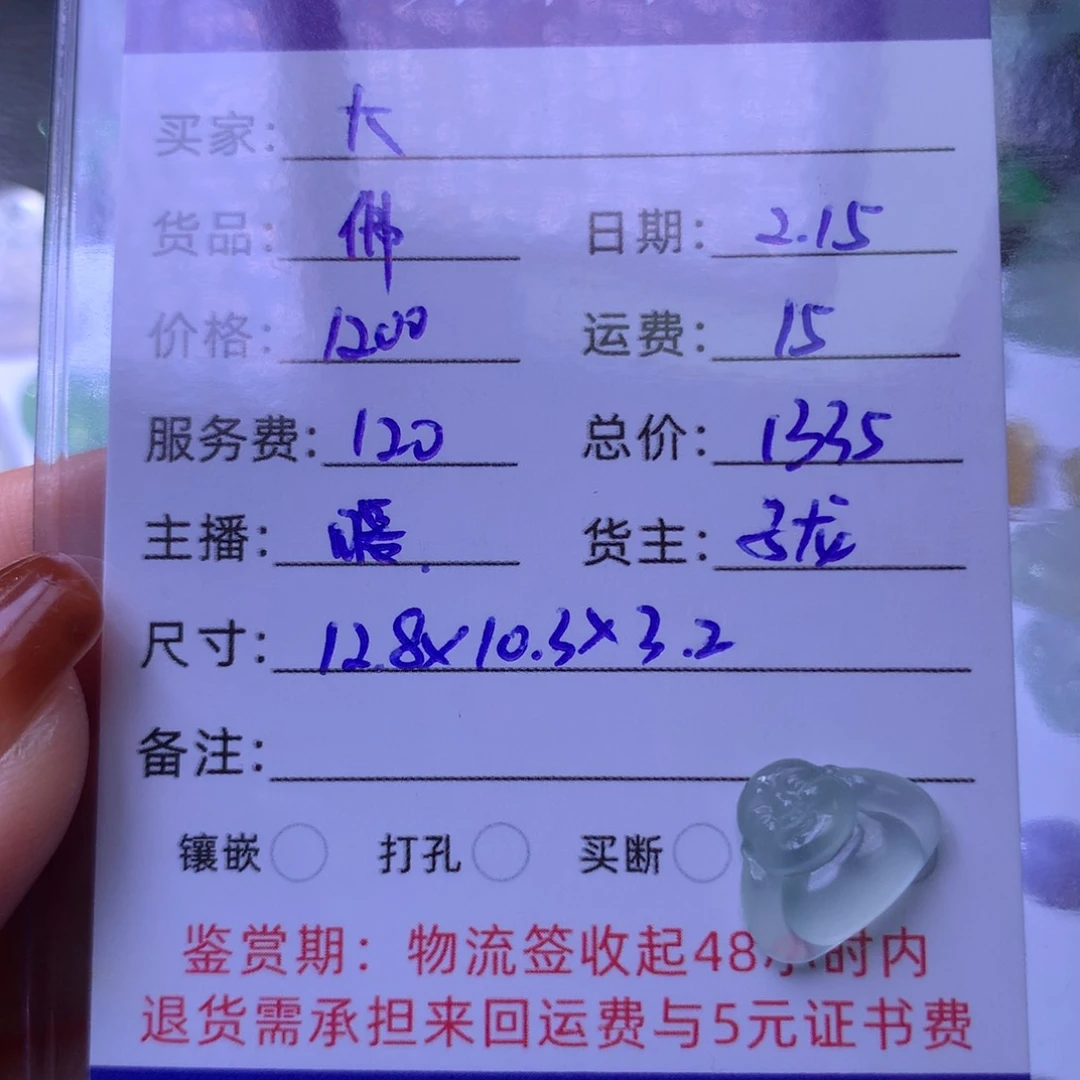 买家: 大
货品: 佛 日期: 2.15
价格: 1200 运费: 15
服务费: 120 总价: 1335
主播: 货主: 子龙
尺寸: 12.8x10.3x3.2
备注:
镶嵌 打孔 买断
鉴赏期: 物流签收起48小时内
退货需承担来回运费与5元证书费